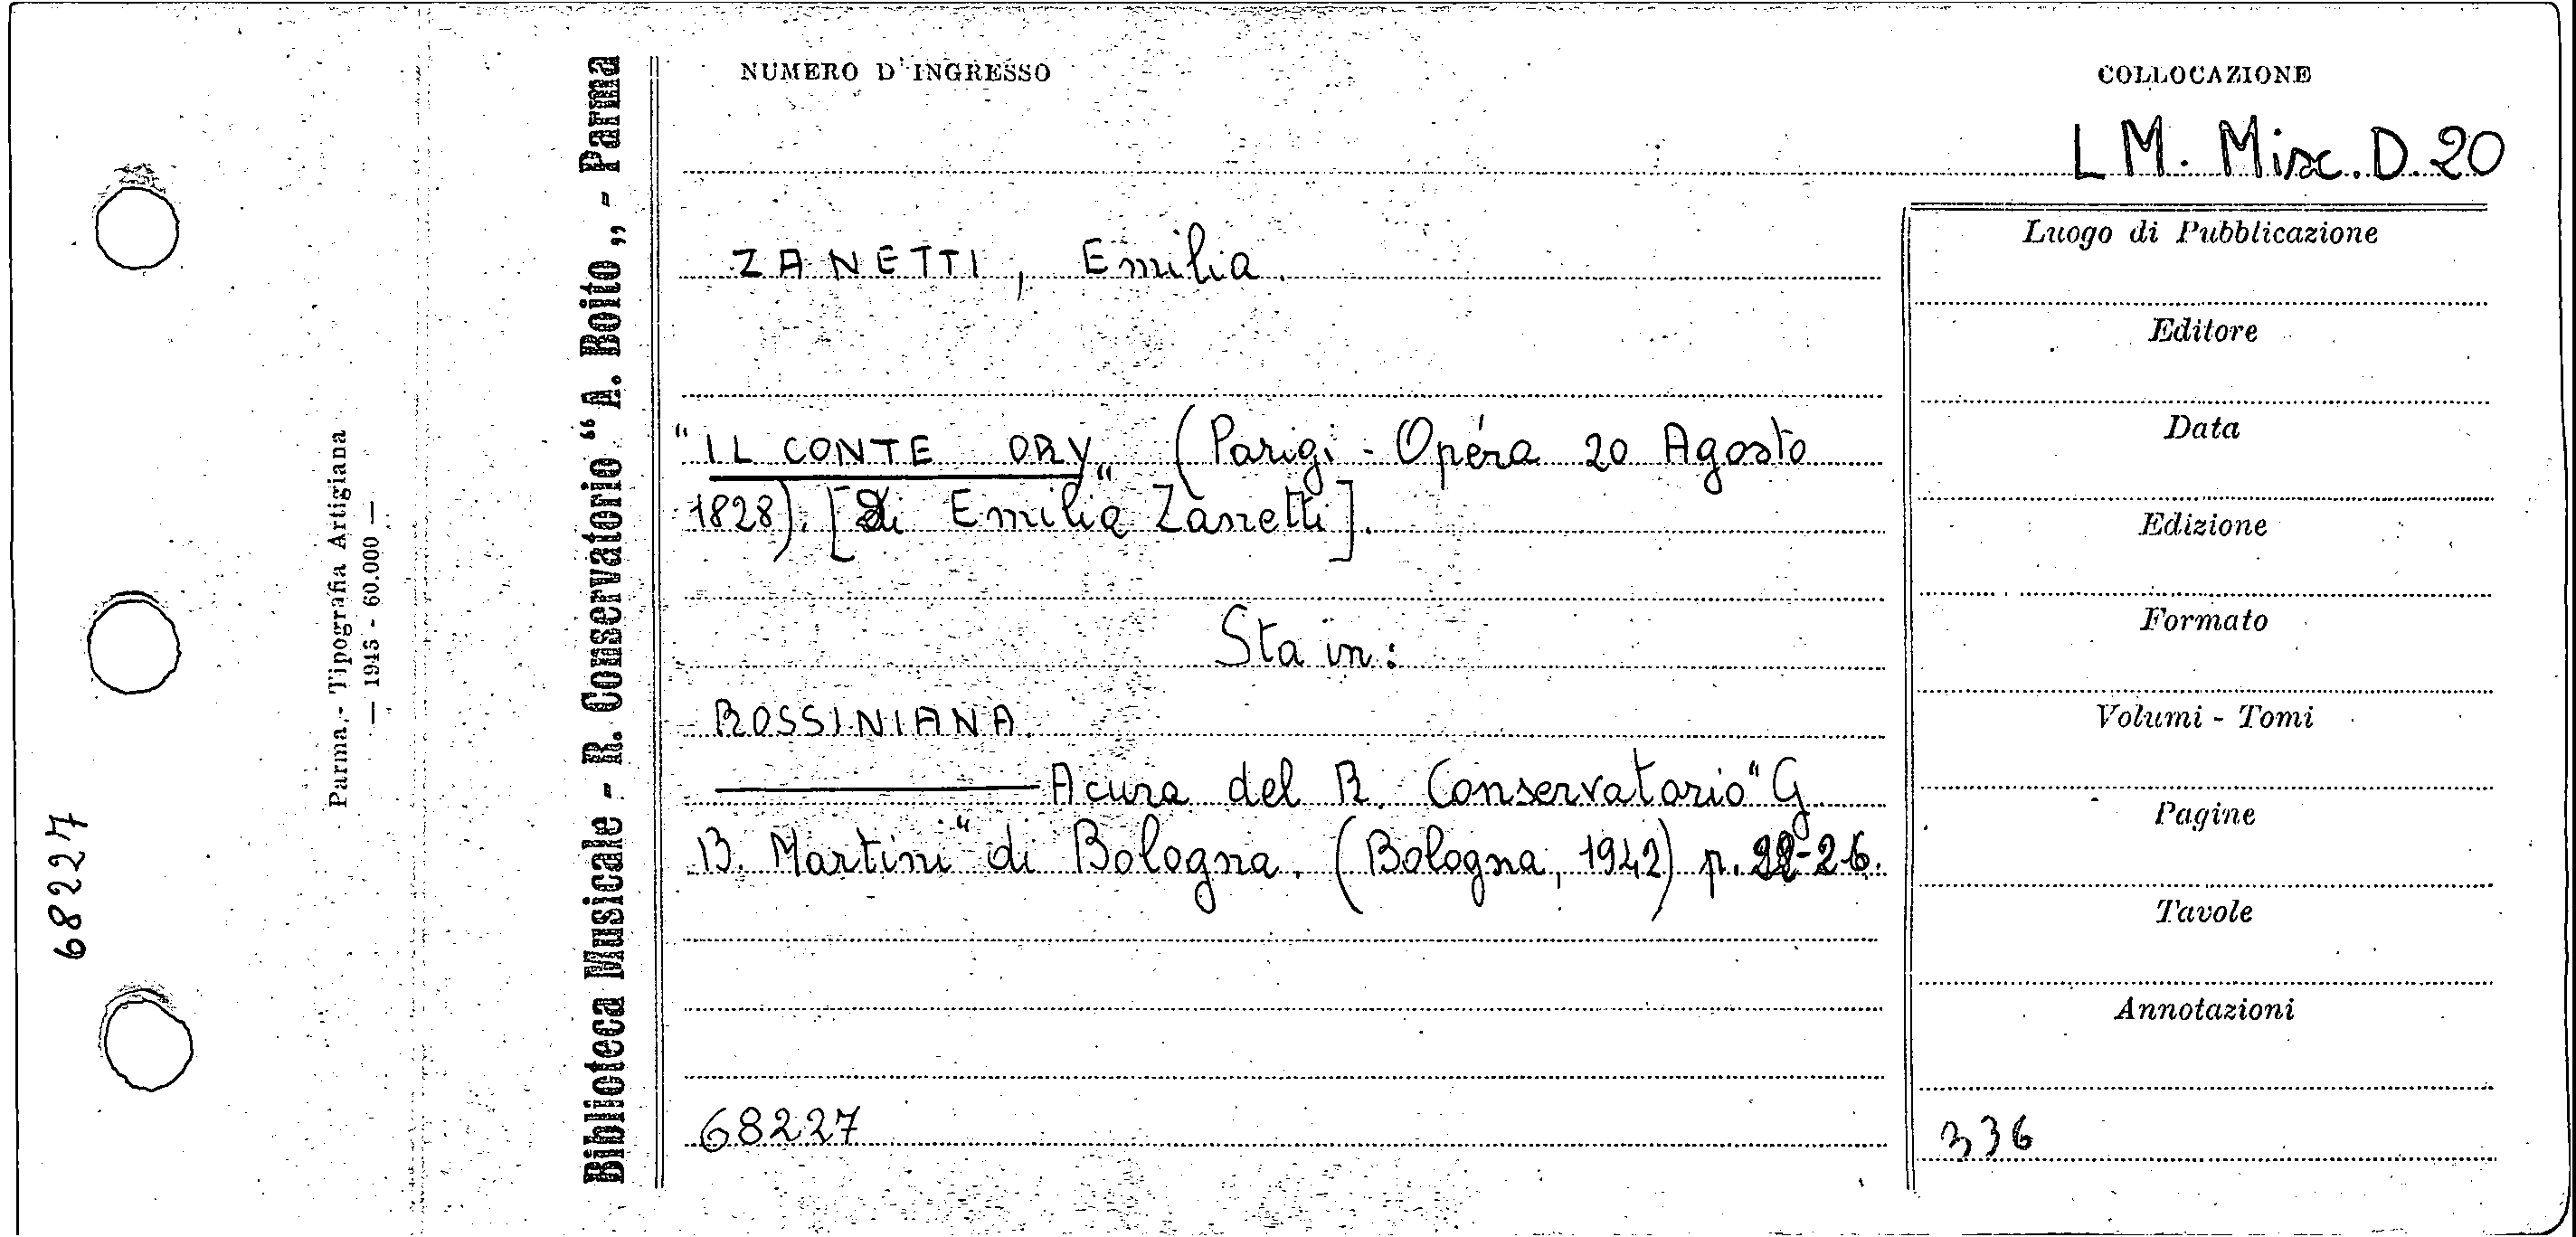 68227
Parma - Tipografia Artigiana
— 1943 - 60.000 —
Biblioteca Musicale - R. Conservatorio “A. Boito„ - Parma
NUMERO D'INGRESSO
COLLOCAZIONE
LM. Misc. D. 20
ZANETTI, Emilia.
"IL CONTE ORY„ (Parigi - Opéra 20 Agosto
1828). [Di Emilia Zanetti].
Sta in:
ROSSINIANA.
A cura del R. Conservatorio "G.
B. Martini" di Bologna. (Bologna, 1942) p. 22-26.
68227
Luogo di Pubblicazione
Editore
Data
Edizione
Formato
Volumi - Tomi
Pagine
Tavole
Annotazioni
336